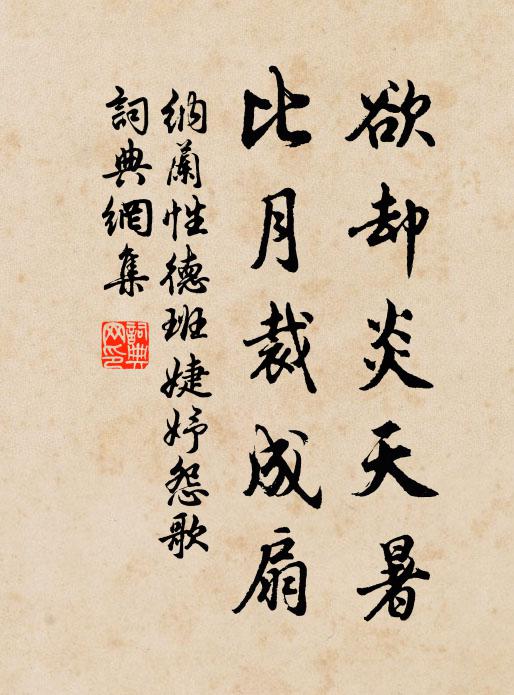 欲却炎天暑
比月裁成扇
纳蘭性德班婕妤怨歌
詞典網集
詞典網印